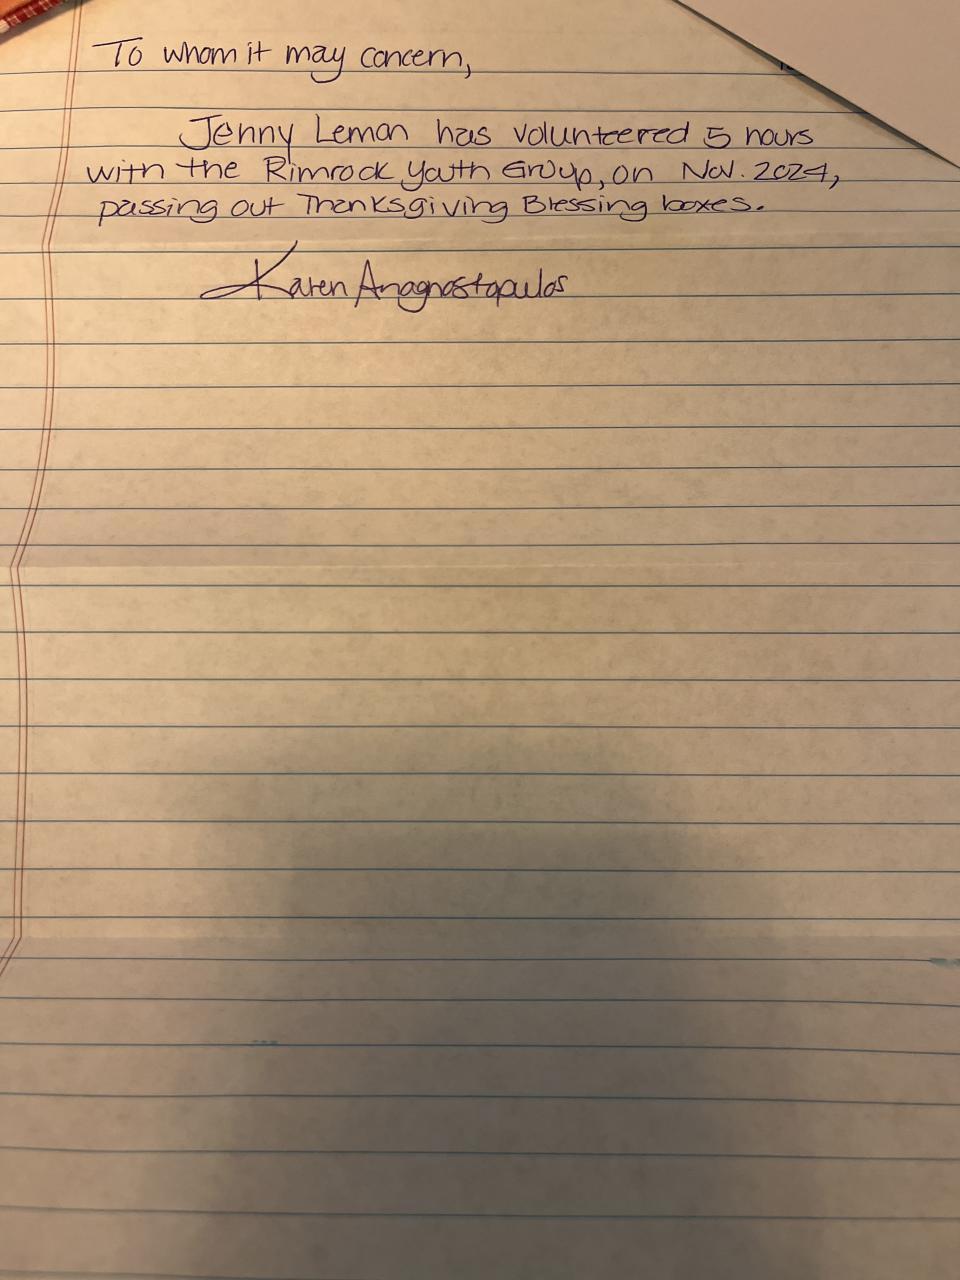 To whom it may concern,
Jenny Lemon has volunteered 5 hours
with the Rimrock Youth Group, on Nov. 2024,
passing out Thanksgiving Blessing boxes.
Karen Anagnostopulos